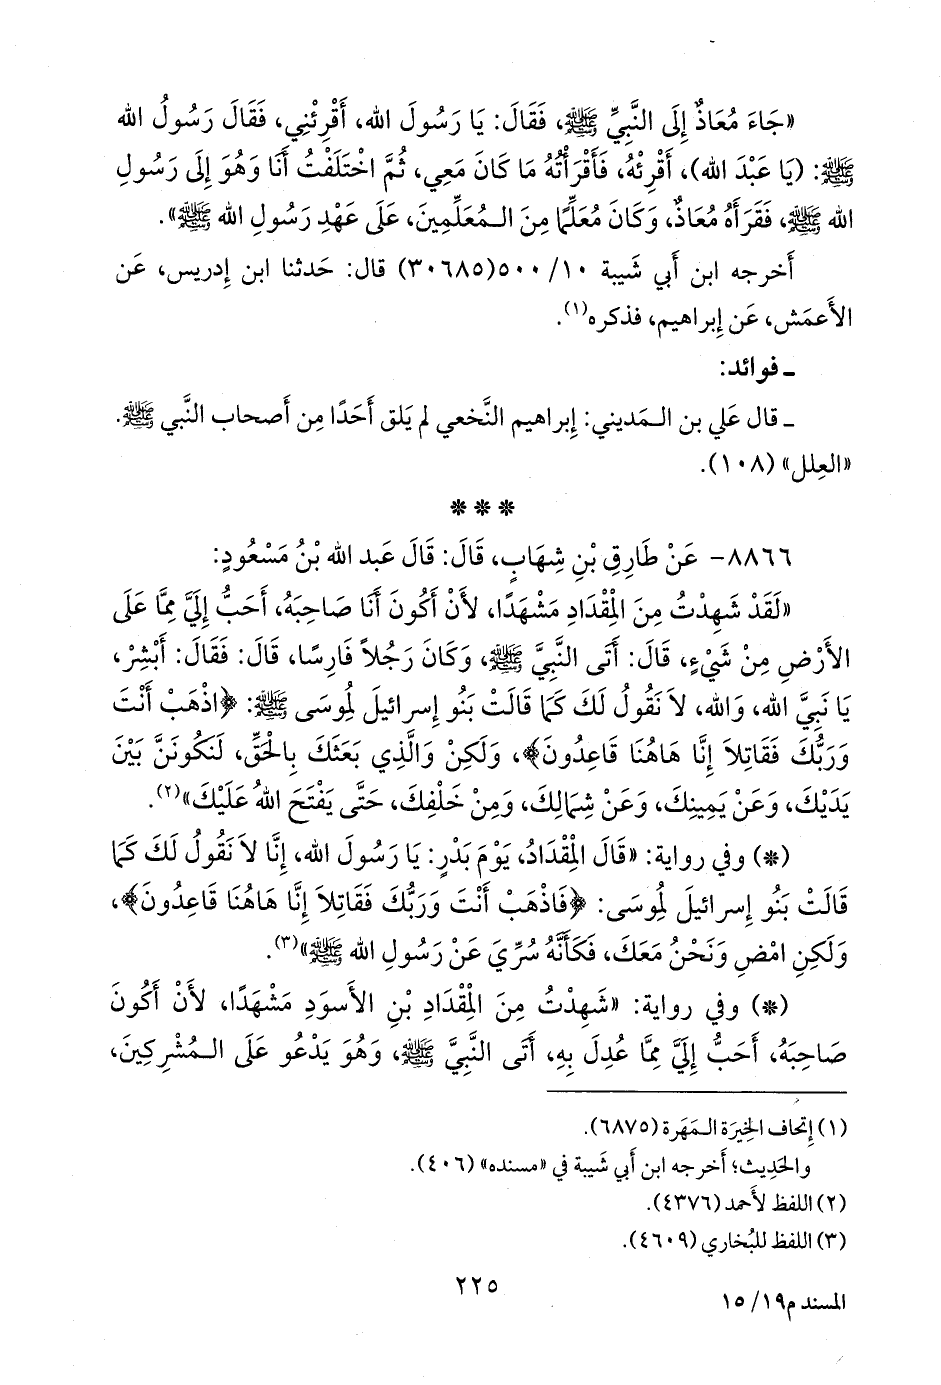 «جَاءَ مُعَاذٌ إِلَى النَّبِيِّ ﷺ، فَقَالَ: يَا رَسُولَ الله، أَقْرِئْنِي، فَقَالَ رَسُولُ الله
ﷺ: (يَا عَبْدَ الله)، أَقْرِئْهُ، فَأَقْرَأْتُهُ مَا كَانَ مَعِي، ثُمَّ اخْتَلَفْتُ أَنَا وَهُوَ إِلَى رَسُولِ
الله ﷺ، فَقَرَأَهُ مُعَاذٌ، وَكَانَ مُعَلِّمًا مِنَ الـمُعَلِّمِينَ، عَلَى عَهْدِ رَسُولِ الله ﷺ».
أَخرجه ابن أَبي شَيبة ١٠/ ٥٠٠(٣٠٦٨٥) قال: حَدثنا ابن إِدريس، عَن
الأَعمَش، عَن إِبراهيم، فذكره(١).
ـ فوائد:
ـ قال عَلي بن الـمَديني: إِبراهيم النَّخعي لم يَلق أَحَدًا مِن أَصحاب النَّبي ﷺ.
«العِلل» (١٠٨).
* * *
٨٨٦٦- عَنْ طَارِقِ بْنِ شِهَابٍ، قَالَ: قَالَ عَبد الله بْنُ مَسْعُودٍ:
«لَقَدْ شَهِدْتُ مِنَ الْمِقْدَادِ مَشْهَدًا، لأَنْ أَكُونَ أَنَا صَاحِبَهُ، أَحَبُّ إِلَيَّ مِمَّا عَلَى
الأَرْضِ مِنْ شَيْءٍ، قَالَ: أَتَى النَّبِيَّ ﷺ، وَكَانَ رَجُلاً فَارِسًا، قَالَ: فَقَالَ: أَبْشِرْ،
يَا نَبِيَّ الله، وَالله، لاَ نَقُولُ لَكَ كَمَا قَالَتْ بَنُو إِسرائيلَ لِمُوسَى ﷺ: ﴿اذْهَبْ أَنْتَ
وَرَبُّكَ فَقَاتِلاَ إِنَّا هَاهُنَا قَاعِدُونَ﴾، وَلَكِنْ وَالَّذِي بَعَثَكَ بِالْحَقِّ، لَنَكُونَنَّ بَيْنَ
يَدَيْكَ، وَعَنْ يَمِينِكَ، وَعَنْ شِمَالِكَ، وَمِنْ خَلْفِكَ، حَتَّى يَفْتَحَ اللهُ عَلَيْكَ»(٢).
(*) وفي رواية: «قَالَ الْمِقْدَادُ، يَوْمَ بَدْرٍ: يَا رَسُولَ الله، إِنَّا لاَ نَقُولُ لَكَ كَمَا
قَالَتْ بَنُو إِسرائيلَ لِمُوسَى: ﴿فَاذْهَبْ أَنْتَ وَرَبُّكَ فَقَاتِلاَ إِنَّا هَاهُنَا قَاعِدُونَ﴾،
وَلَكِنِ امْضِ وَنَحْنُ مَعَكَ، فَكَأَنَّهُ سُرِّيَ عَنْ رَسُولِ الله ﷺ»(٣).
(*) وفي رواية: «شَهِدْتُ مِنَ الْمِقْدَادِ بْنِ الأَسوَدِ مَشْهَدًا، لأَنْ أَكُونَ
صَاحِبَهُ، أَحَبُّ إِلَيَّ مِمَّا عُدِلَ بِهِ، أَتَى النَّبِيَّ ﷺ، وَهُوَ يَدْعُو عَلَى الـمُشْرِكِينَ،
(١) إِتحاف الخِيرَة الـمَهَرة (٦٨٧٥).
والحَدِيث؛ أَخرجه ابن أَبي شَيبة في «مسنده» (٤٠٦).
(٢) اللفظ لأَحمد (٤٣٧٦).
(٣) اللفظ للبُخاري (٤٦٠٩).
٢٢٥
المسند م١٩/ ١٥